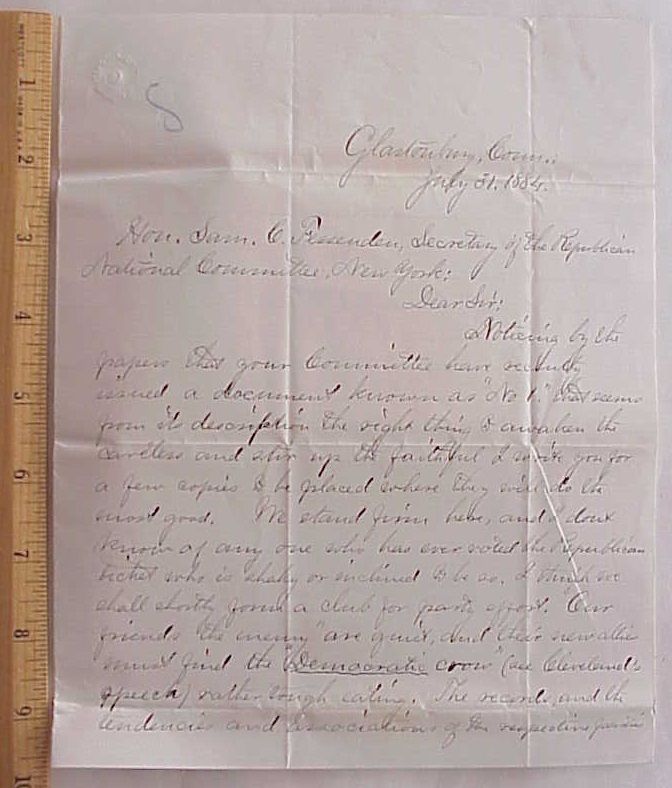 Glastonbury, Conn.,
July 31. 1884.
Hon. Sam. C. Fessenden, Secretary of the Republican
National Committee, New York:
Dear Sir:
Noticing by the
papers that your Committee have recently
issued a document known as "No 1." that seems
from its description the right thing to awaken the
careless and stir up the faithful I write you for
a few copies to be placed where they will do the
most good. We stand firm here, and I dont
know of any one who has ever voted the Republican
ticket who is shaky or inclined to be so. I think we
shall shortly form a club for party effort. "Our
friends the enemy" are quiet, and their new allies
must find the "Democratic crow" (see Cleveland's
speech) rather tough eating. The records, and the
tendencies and associations of the respective parties
1
2
3
4
5
6
7
8
9
10